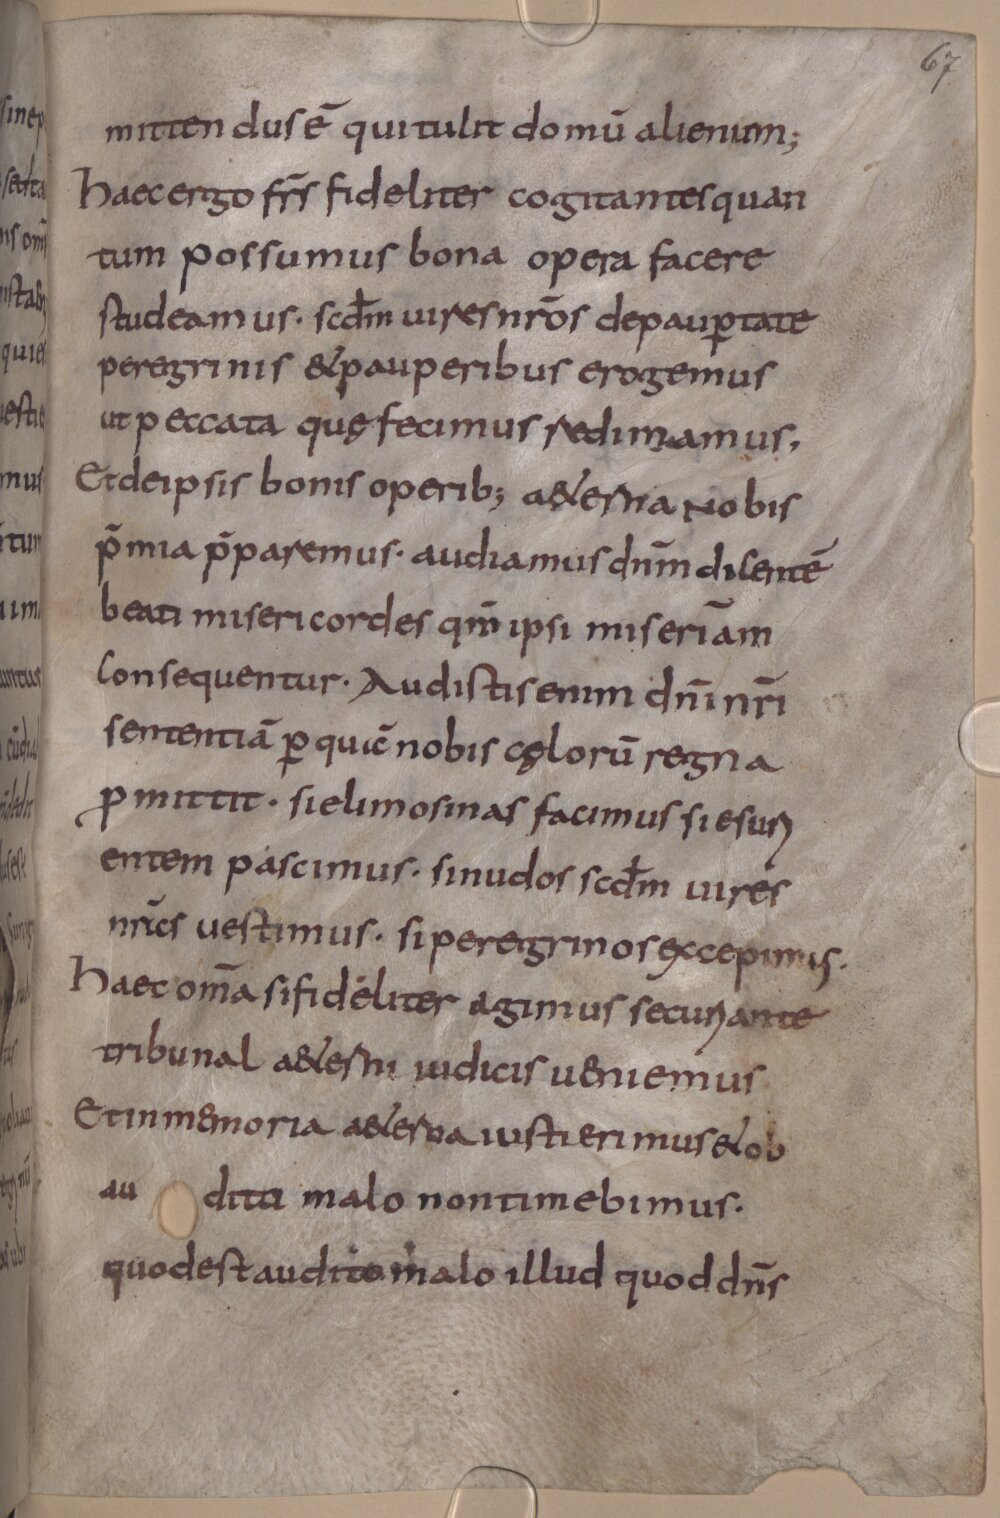 67
mittendus ē qui tulit domū alienum;
Haec ergo frs̄ fideliter cogitantes quan
tum possumus bona opera facere
studeamus. scdm̄ uires nrōs de paup̱tate
peregrinis & pauperibus erogemus
ut peccata quę fecimus redimamus,
Et de ipsis bonis operib; a&erna nobis
p̄mia p̄paremus. audiamus dnm̄ dicentē
beati misericordes qm̄ ipsi miseriam̄
consequentur. Audistis enim dnī nrī
sententiā p̱ quic̄ nobis cęlorū regna
ꝓmittit. si elimosinas facimus si esuri
entem pascimus. si nudos scdm̄ uires
nrīcs uestimus. si peregrinos exccepimus.
Haec om̄a si fideliter agimus securi ante
tribunal a&erni iudicis ueniemus
Et in memoria a&erna iusti erimus & ob
au diti malo non timebimus.
quod est audito malo illud quod dns̄